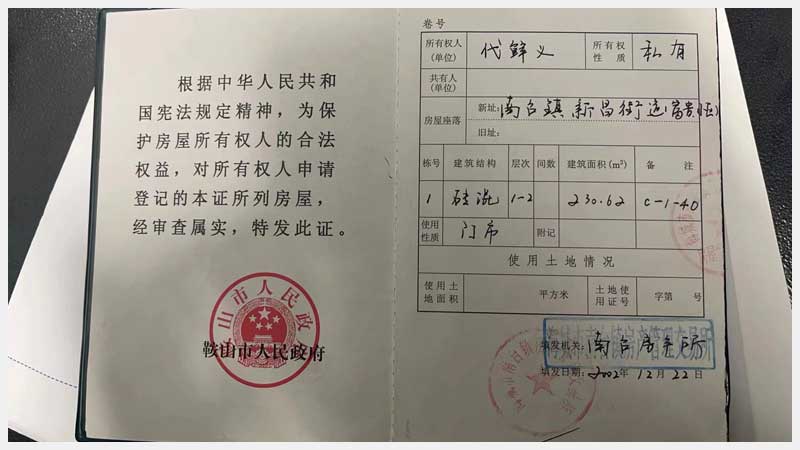 根据中华人民共和
国宪法规定精神，为保
护房屋所有权人的合法
权益，对所有权人申请
登记的本证所列房屋，
经审查属实，特发此证。
鞍山市人民政府
卷号
所有权人
(单位)
代鲜义
所有权
性质
私有
共有人
(单位)
房屋座落
新址:
南台镇新昌街
旧址:
栋号 建筑结构 层次 间数 建筑面积(m²) 备注
1 砖混 1-2 230.62 C-1-40
使用
性质
门市
附记
使用土地情况
使用土
地面积
平方米
土地使
用证号
字第 号
填发机关:
南台房产所
填发日期: 2002年12月22日